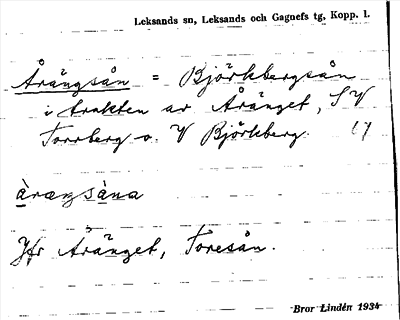 Leksands sn, Leksands och Gagnefs tg, Kopp. l.
Årängsån = Björkbergsån
i trakten av Åränget, SV
Torrberg o. V Björkberg. 17
àrængsàna
Jfr Åränget, Toresån.
Bror Lindén 1934